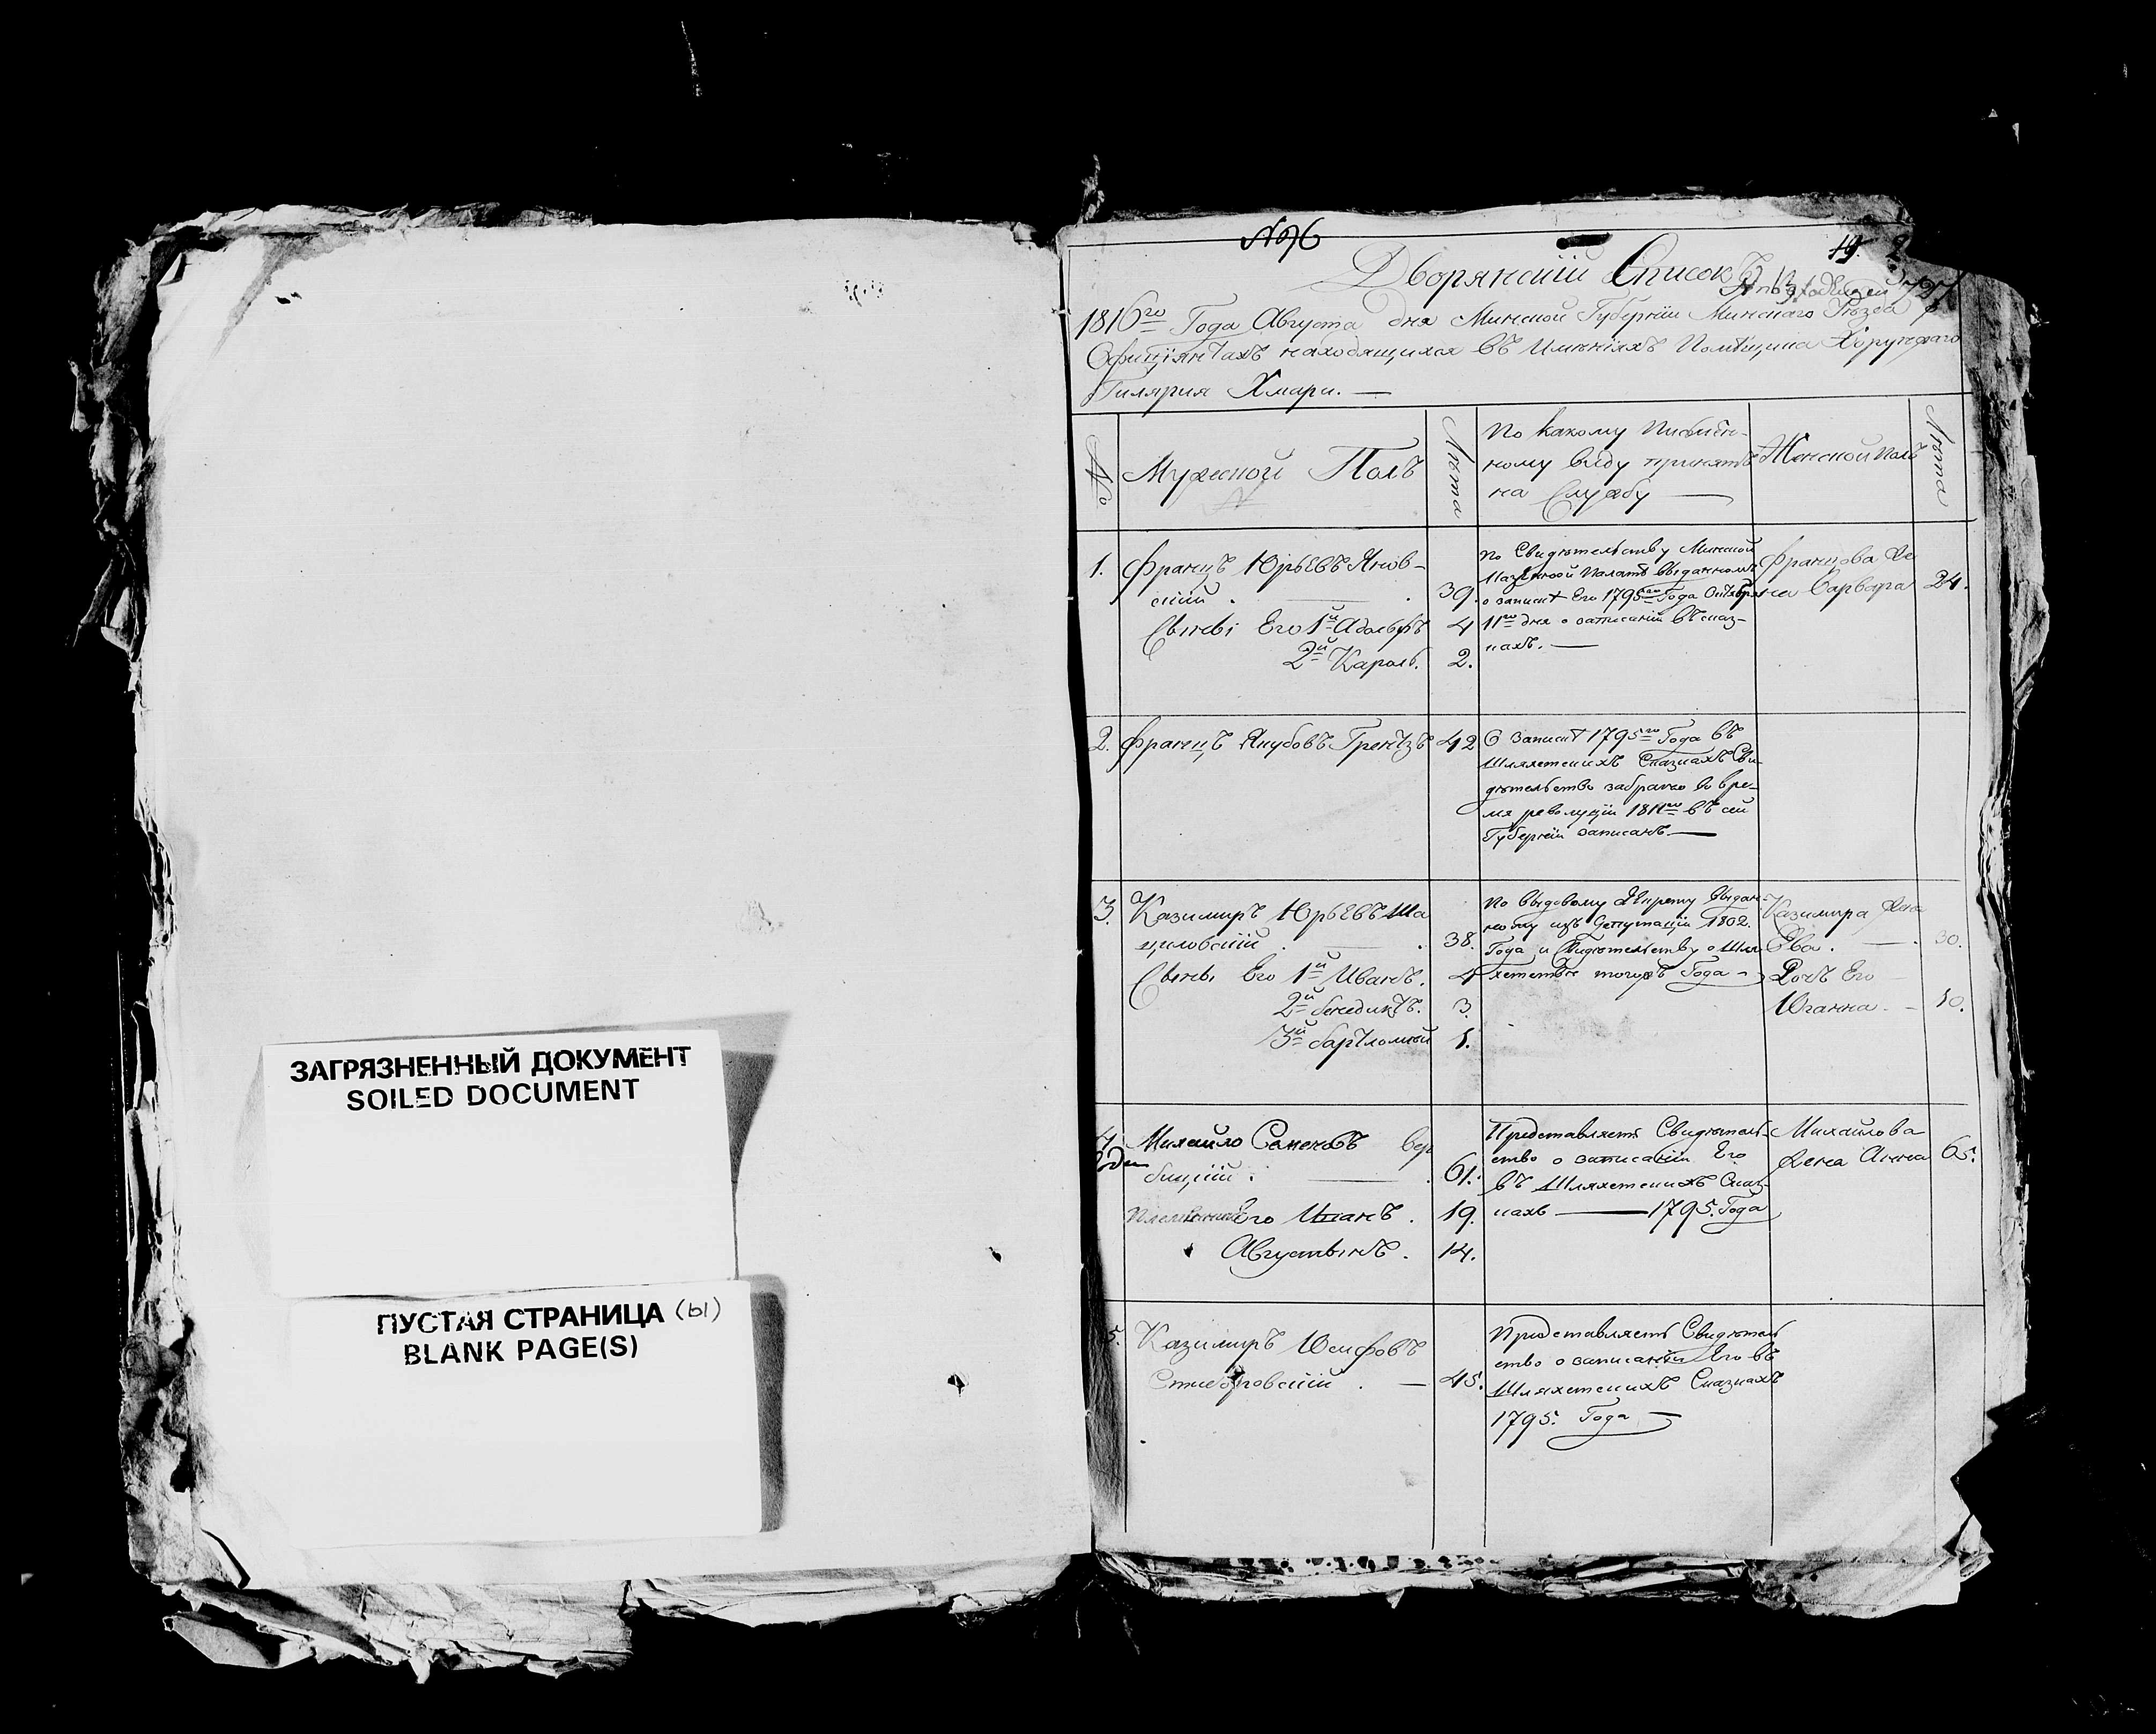 ЗАГРЯЗНЕННЫЙ ДОКУМЕНТ
SOILED DOCUMENT
ПУСТАЯ СТРАНИЦА (ы)
BLANK PAGE(S)
№ 96
19.
Дворянскій Списокъ
727
1816го Года Августа дня Минской Губерніи Минскаго Уѣзда о
Офиціянтахъ находящихся въ Имѣніяхъ Помѣщика Хорунжаго
Гилярія Хмары. —
№
Мужеской Полъ
Лѣта
По какому Писмен-
ному виду принятъ
на Службу —
Женской Полъ
Лѣта
1. Францъ Юрьевъ Янов-
скій . — . 39.
Сыны Его 1й Адольфъ 4
2й Кароль. 2.
По Свидѣтельству Минской
Казенной Палаты выданному
о запискѣ Его 1795го Года Октября
11го дня о записаніи въ сказ-
кахъ. —
Францова Же
на Варвара 24.
2. Францъ Якубовъ 42
О запискѣ 1795го Года въ
Шляхетскихъ Сказкахъ Сви-
дѣтельство забрано во вре-
мя революціи въ сей
Губерніи записанъ. —
3. Казимиръ Юрьевъ Ша
циловскій . — . 38.
Сыны Его 1й Иванъ. 4
2й Бенедиктъ. 3.
3й Бартломей 1.
По выданому выдан-
ному изъ Депутаціи 1802.
Года и Свидѣтельству о Шля
хетствѣ тогожъ Года —
Казимира Жена
Эва . — . 30.
Дочь Его
Юганна. — 10.
4. Михайло вер
бицкій . — . 61.
Племянники Его 19.
Августынъ . 14.
Представляетъ Свидѣтель-
ство о записаніи Его
въ Шляхетскихъ Сказ-
кахъ — 1795. Года
Михайлова
Жена Анна 65.
5. Казимиръ Юсифовъ
. — 45.
Представляетъ Свидѣтель
ство о записаніи Его въ
Шляхетскихъ Сказкахъ
1795. Года —